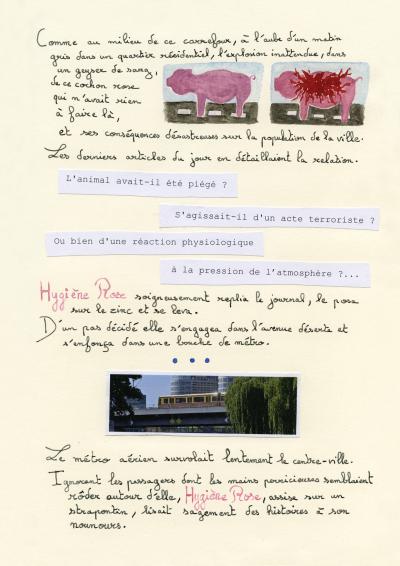 Comme au milieu de ce carrefour, à l'aube d'un matin
gris dans un quartier résidentiel, l'explosion inattendue, dans
un geyser de sang,
de ce cochon rose
qui n'avait rien
à faire là,
et ses conséquences désastreuses sur la population de la ville.
Les derniers articles du jour en détaillaient la relation.
L'animal avait-il été piégé ?
S'agissait-il d'un acte terroriste ?
Ou bien d'une réaction physiologique
à la pression de l'atmosphère ?...
Hygiène Rose soigneusement replia le journal, le posa
sur le zinc et se leva.
D'un pas décidé elle s'engagea dans l'avenue déserte et
s'enfonça dans une bouche de métro.
Le métro aérien survolait lentement le centre-ville.
Ignorant les passagers dont les mains pernicieuses semblaient
rôder autour d'elle, Hygiène Rose, assise sur un
strapontin, lisait sagement des histoires à son
nounours.